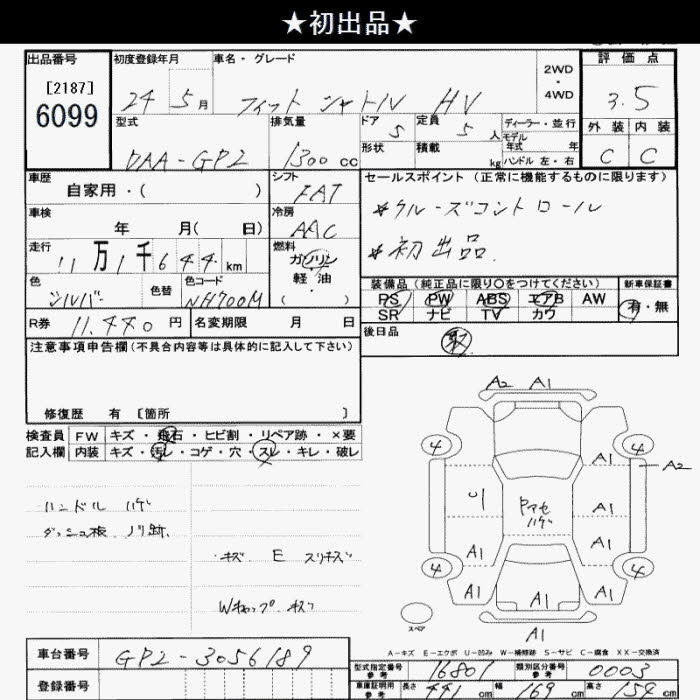 ★初出品★
出品番号
[2187]
6099
初度登録年月
24 5月
車名・グレード
フィット シャトル HV
2WD
・
4WD
評価点
3.5
外装 内装
C C
型式
DAA-GP2
排気量
1300cc
ドア
5
定員
5人
形状
積載
kg
ディーラー・並行
モデル
年式 年
ハンドル 左・右
車歴
自家用・( )
シフト
FAT
車検
年 月( 日)
冷房
AAC
走行
11万1千644km
燃料
ガソリン
軽油
( ・ )
色
シルバー
色替
色コード
NH700M
R券 11,440円
名変期限 月 日
セールスポイント(正常に機能するものに限ります)
*クルーズコントロール
*初出品
装備品(純正品に限り○をつけてください)
PS PW ABS エアB AW
SR ナビ TV カワ
新車保証書
有・無
後日品
取
注意事項申告欄(不具合内容等は具体的に記入して下さい)
修復歴 有〔箇所 〕
検査員
記入欄
FW キズ・飛石・ヒビ割・リペア跡・×要
内装 キズ・汚レ・コゲ・穴・スレ・キレ・破レ
ハンドル ハゲ
ダッシュ板 ノリ跡、
キズ E スリキズ
Wキャップ キズ
A2 A1
4 4
A1
A2
U
Pマセ
ハゲ
A1
A1 A1
4 4
A1 A1 A1
A1
スペア
A-キズ E-エクボ U-凹み W-補修跡 S-サビ C-腐食 XX-交換済
車台番号
GP2-3056189
登録番号
型式指定番号
参考
16801
類別区分番号
参考
0003
車庫証明用
参考
長さ 441cm
幅 169cm
高さ 154cm